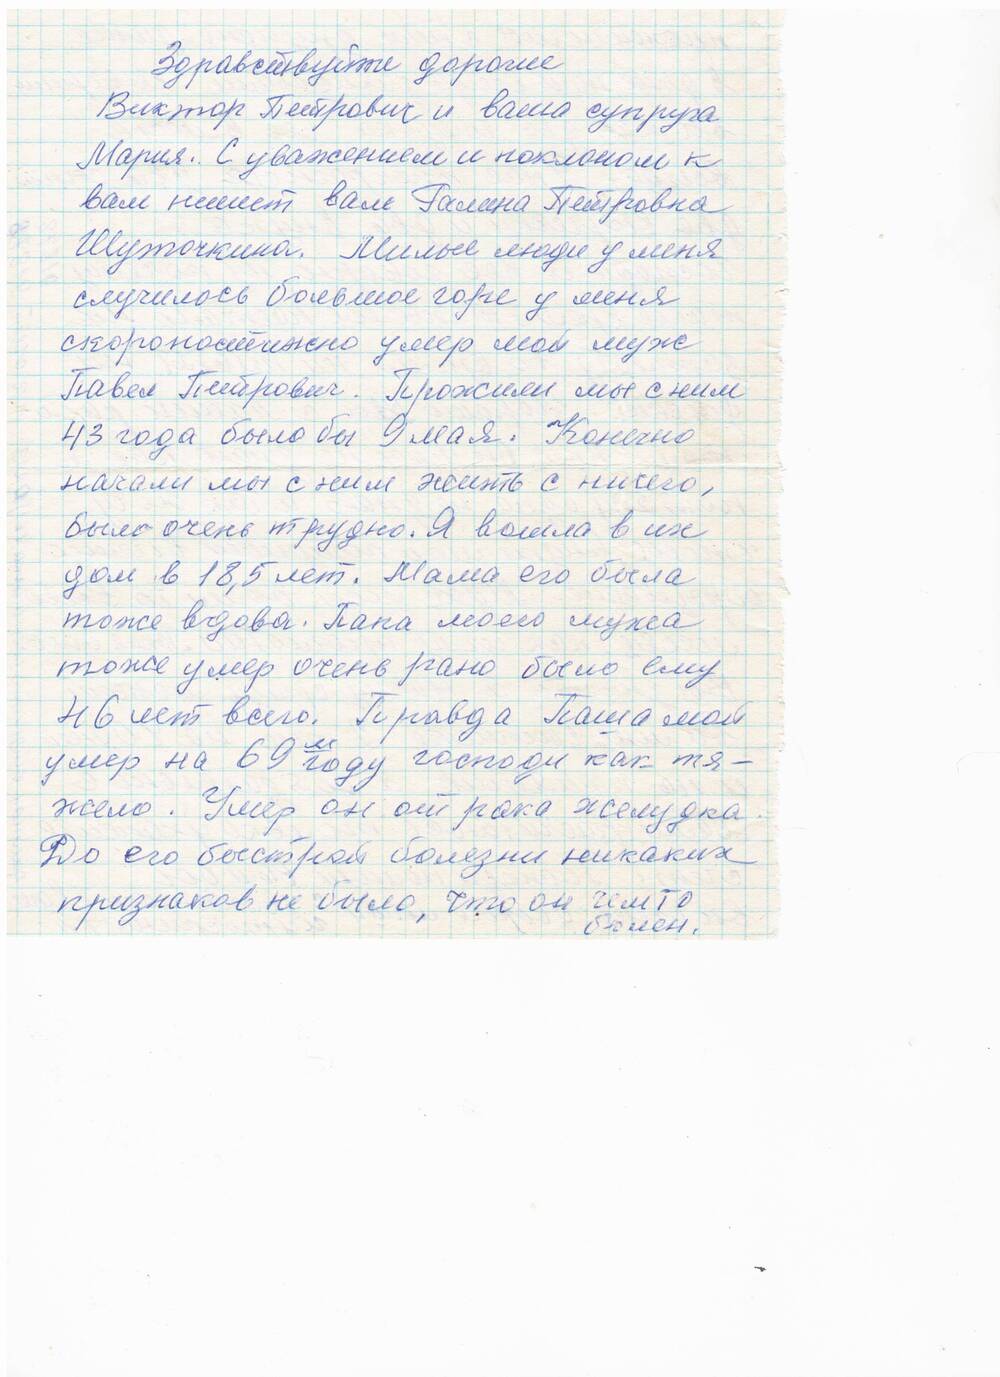 Здравствуйте дорогие
Виктор Петрович и ваша супруга
Мария. С уважением и поклоном к
вам пишет вам Галина Петровна
Шуточкина. Милые люди у меня
случилось большое горе у меня
скоропостижно умер мой муж
Павел Петрович. Прожили мы с ним
43 года было бы 9 мая. Конечно
начали мы с ним жить с ничего,
было очень трудно. Я вошла в их
дом в 18,5 лет. Мама его была
тоже вдова. Папа моего мужа
тоже умер очень рано было ему
46 лет всего. Правда Паша мой
умер на 69м году господи как тя-
жело. Умер он от рака желудка.
До его быстрой болезни никаких
признаков не было, что он чемто
болен.